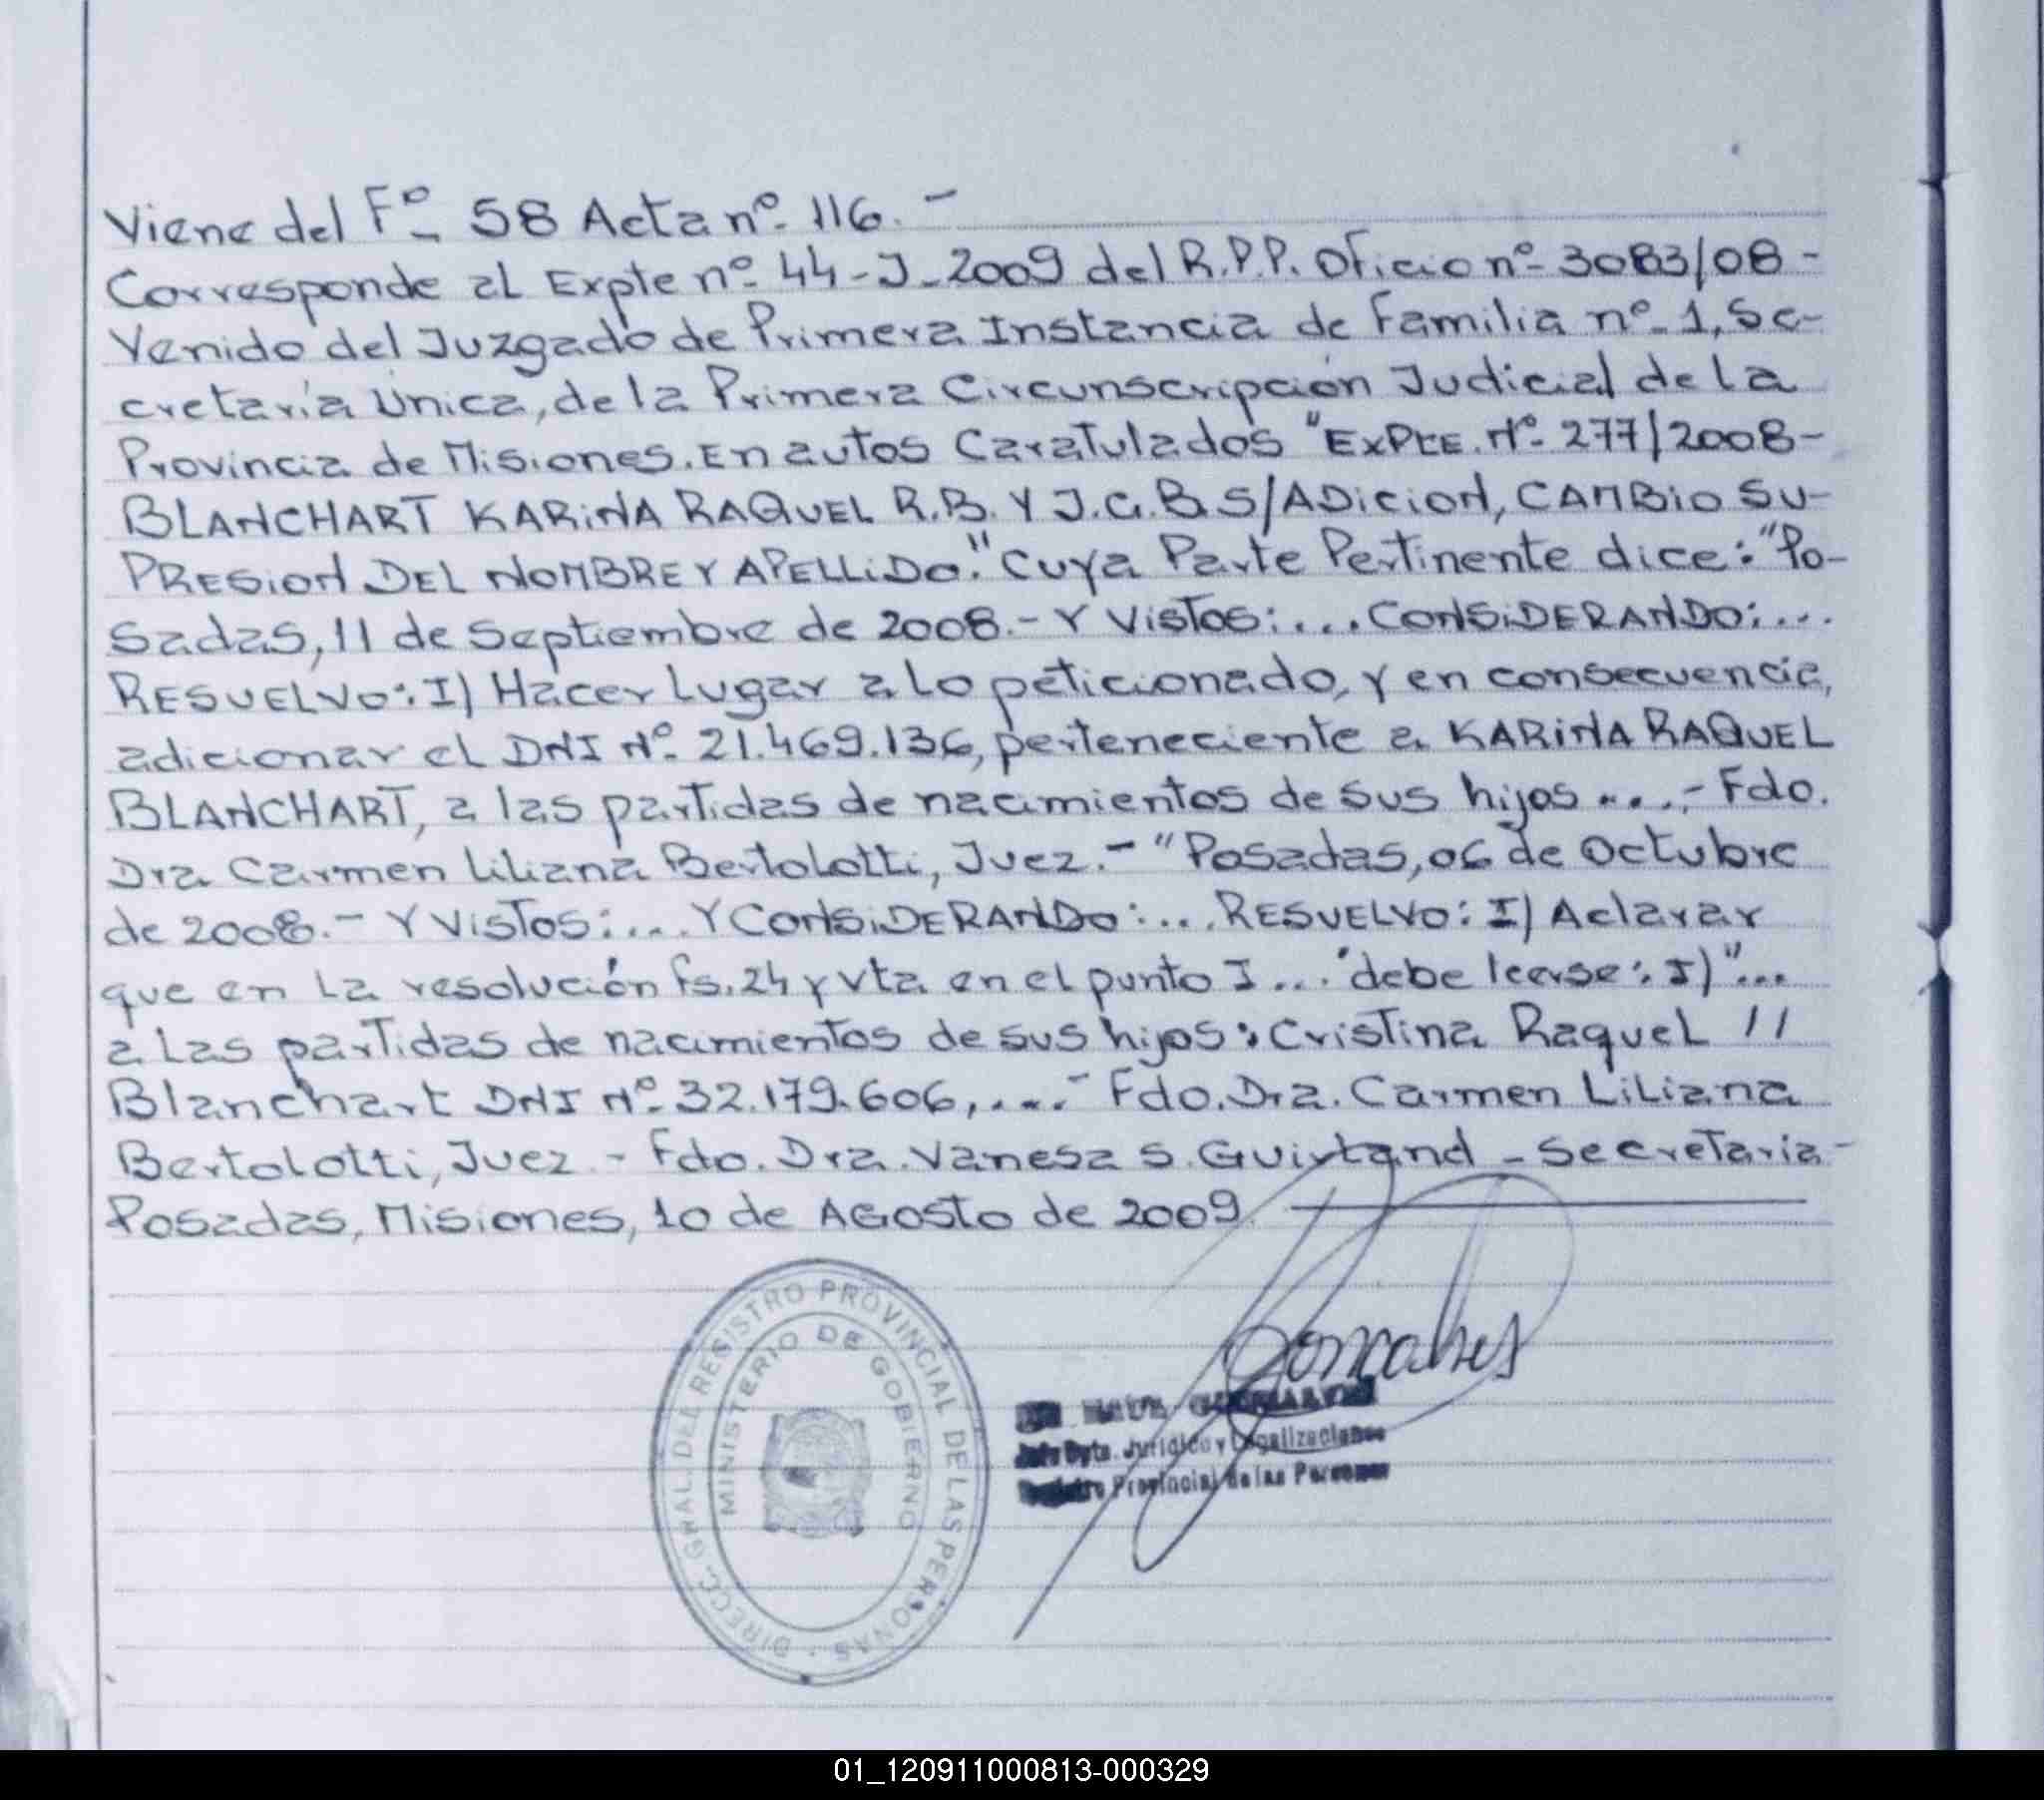 Viene del Fº 58 Acta nº 116.-
Corresponde al Expte nº 44-J-2009 del R.P.P. Oficio nº 3083/08-
Venido del Juzgado de Primera Instancia de Familia nº 1, Se-
cretaría Única, de la Primera Circunscripción Judicial de la
Provincia de Misiones. En autos Caratulados "EXPTE. Nº 277/2008-
BLANCHART KARINA RAQUEL R.B. Y J.G.B. S/ADICION, CAMBIO SU-
PRESION DEL NOMBRE Y APELLIDO." Cuya Parte Pertinente dice: "Po-
sadas, 11 de Septiembre de 2008.- Y Vistos:... CONSIDERANDO:...
RESUELVO: I) Hacer Lugar a lo peticionado, y en consecuencia,
adicionar el DNI Nº 21.469.136, perteneciente a KARINA RAQUEL
BLANCHART, a las partidas de nacimientos de sus hijos ....- Fdo.
Dra Carmen Liliana Bertolotti, Juez.- "Posadas, 06 de Octubre
de 2008.- Y VISTOS:... Y CONSIDERANDO:... RESUELVO: I) Aclarar
que en la resolución fs. 24 y vta en el punto I... debe leerse: I)"...
a las partidas de nacimientos de sus hijos: Cristina Raquel //
Blanchart DNI Nº 32.179.606,...- Fdo. Dra. Carmen Liliana
Bertolotti, Juez - Fdo. Dra. Vanesa S. Guirland - Secretaria-
Posadas, Misiones, 10 de Agosto de 2009.
DIRECC. GRAL. DEL REGISTRO PROVINCIAL DE LAS PERSONAS
MINISTERIO DE GOBIERNO
Jefe Dpto. Jurídico y Legalizaciones
Registro Provincial de las Personas
01_120911000813-000329